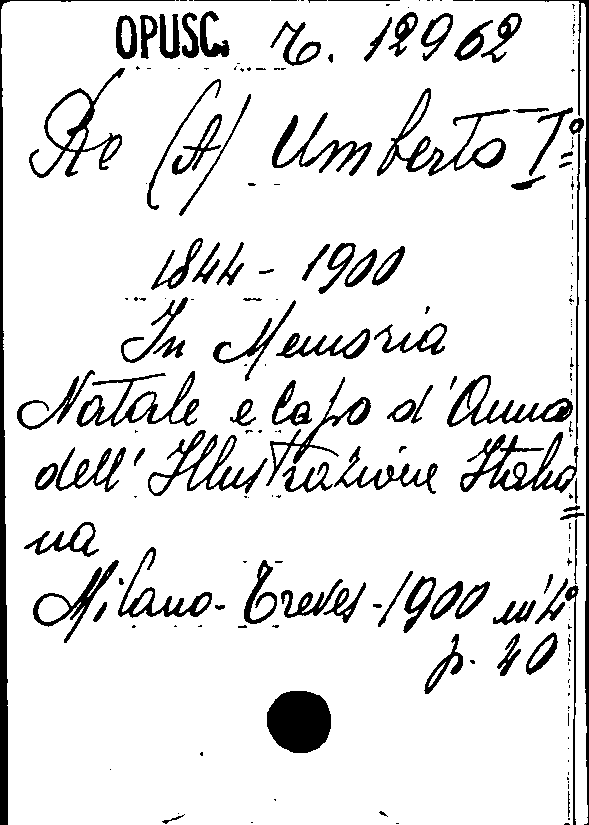 OPUSC. r. 12962
Re (A) Umberto I°=
1844 - 1900
In Memoria
Natale e Capo d'Anno
dell' Illustrazione Italia=
na
Milano - Treves - 1900 in 4°
p. 40